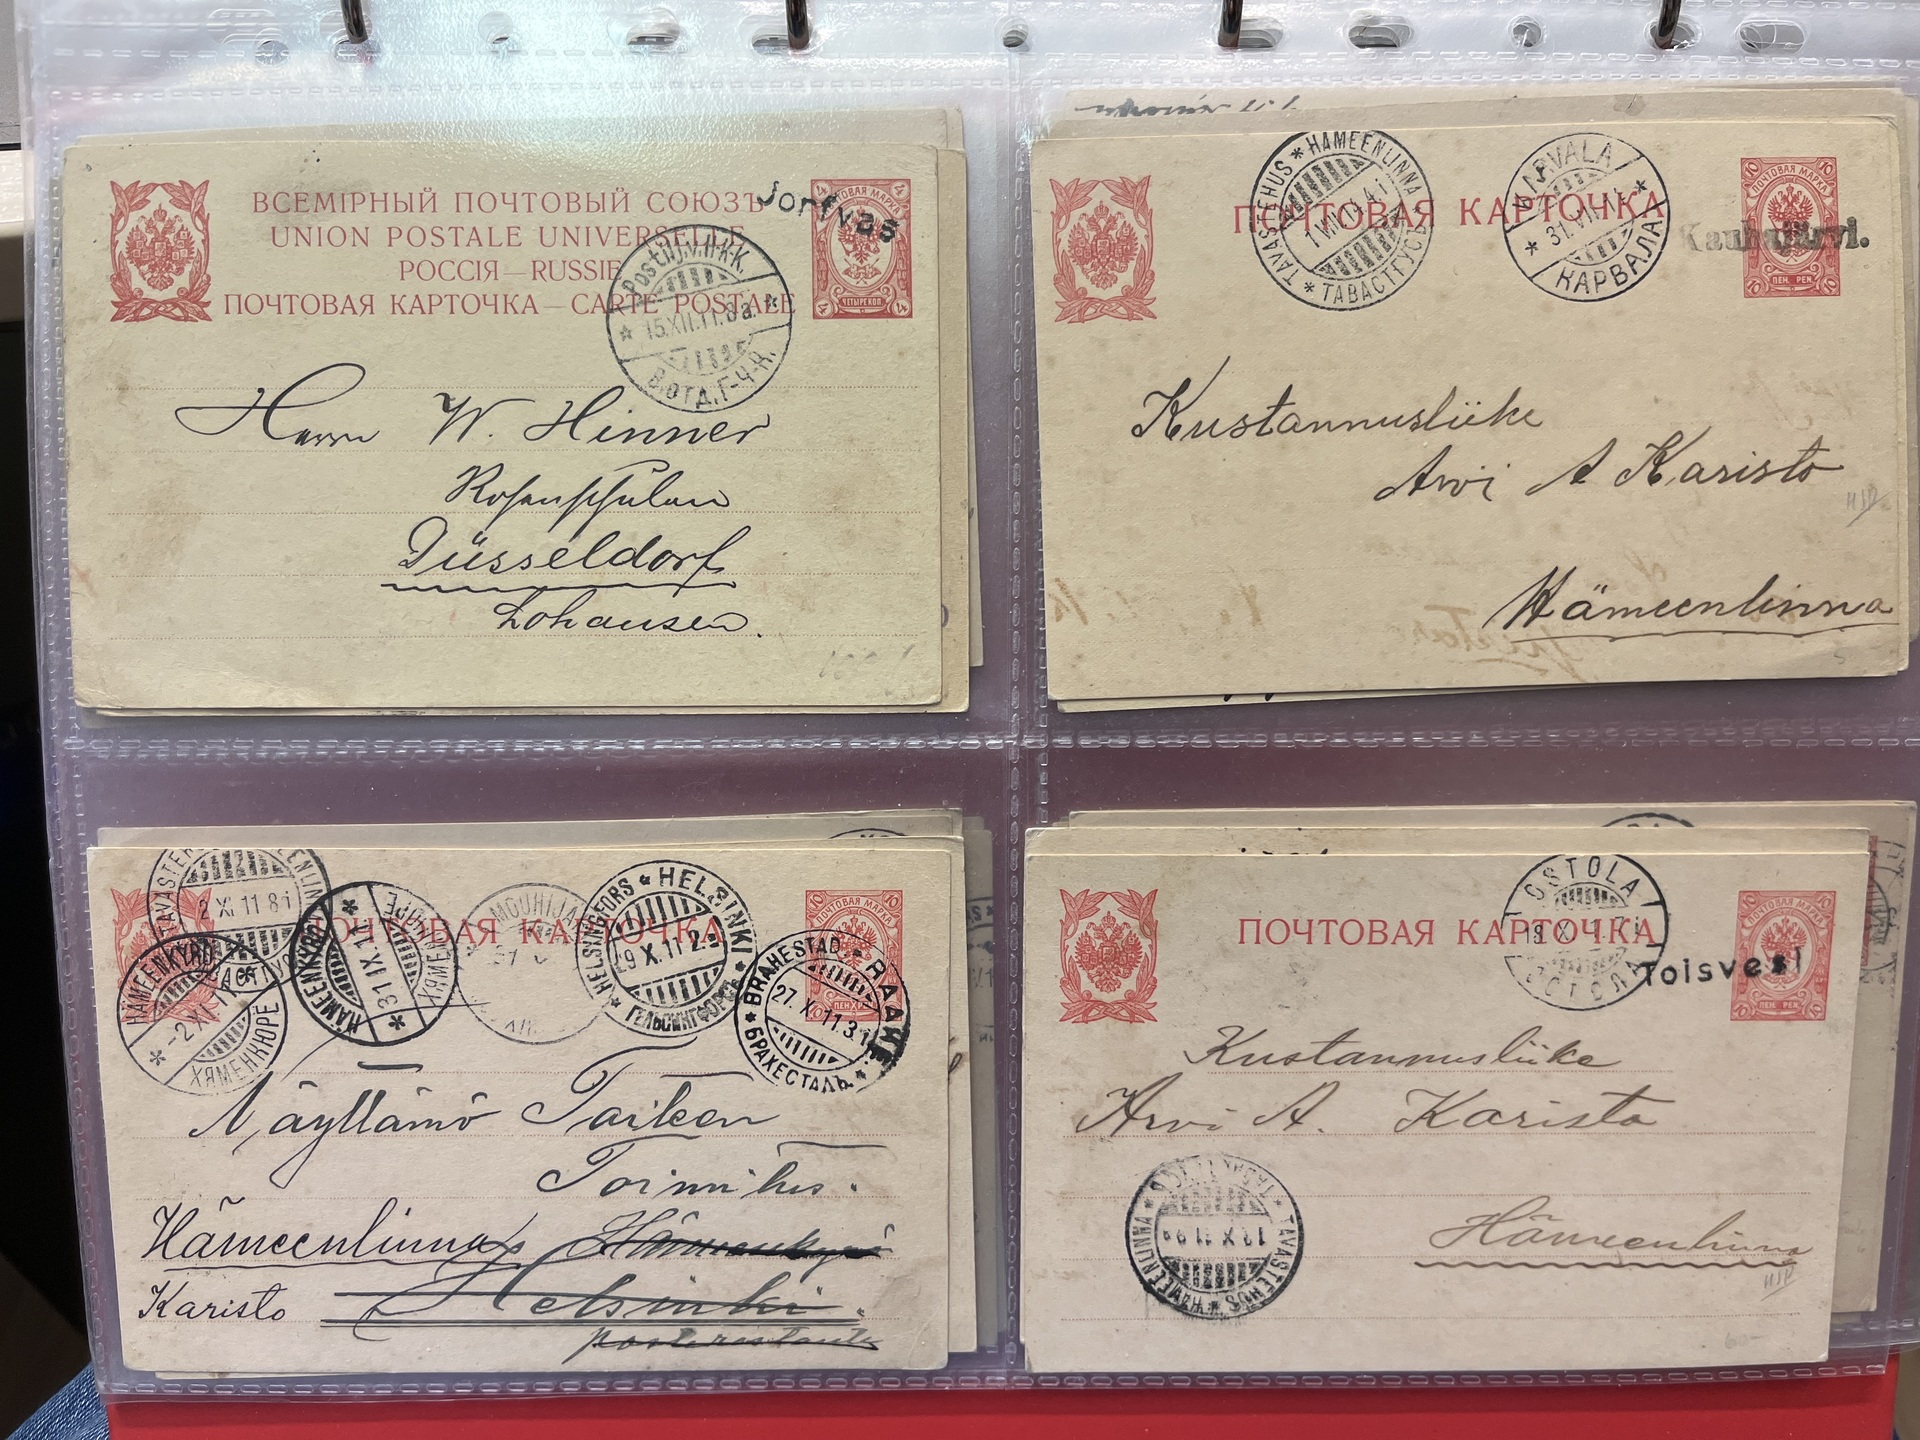 ВСЕМІРНЫЙ ПОЧТОВЫЙ СОЮЗЪ
UNION POSTALE UNIVERSELLE
РОССІЯ — RUSSIE
ПОЧТОВАЯ КАРТОЧКА — CARTE POSTALE
Jorfvas
4 ПОЧТОВАЯ МАРКА 4
4 ЧЕТЫРЕ КОП 4
Postilj.v.H-K-K.
15.XII.11.8a.
В.ОТД.Г-Ч-К.
Herrn W. Hinner
Rosenschulen
Düsseldorf
Lohausen.
ПОЧТОВАЯ КАРТОЧКА
TAVASTEHUS * HÄMEENLINNA
1.VIII.11.4 i
* ТАВАСТГУСЪ *
KARVALA
31.VII.11
КАРВАЛА
Kauhajärvi.
10 ПОЧТОВАЯ МАРКА 10
10 ПЕН. PEN. 10
Kustannusliike
Arvi A Karisto
Hämeenlinna
ПОЧТОВАЯ КАРТОЧКА
2 XI 11 8 i
HÄMEENKYRÖ
-2.XI.11
ХЯМЕНКЮРЕ
HÄMEENKYRÖ
31.IX.11
ХЯМЕНКЮРЕ
MOUHIJÄ
HELSINGFORS * HELSINKI
29.X.11 2.
* ГЕЛЬСИНГФОРСЪ *
BRAHESTAD * RAAHE
27.X.11.3 i
* БРАХЕСТАДЪ *
10 ПОЧТОВАЯ МАРКА 10
Näyttämö Taiteen
Toimitus.
Hämeenlinna Hämeenkyrö
Karisto Helsinki.
poste restante
ПОЧТОВАЯ КАРТОЧКА
OSTOLA
ОСТОЛА
Toisvesi
10 ПОЧТОВАЯ МАРКА 10
10 ПЕН. PEN. 10
Kustannusliike
Arvi A. Karisto
TAVASTEHUS * HÄMEENLINNA
Hämeenlinna